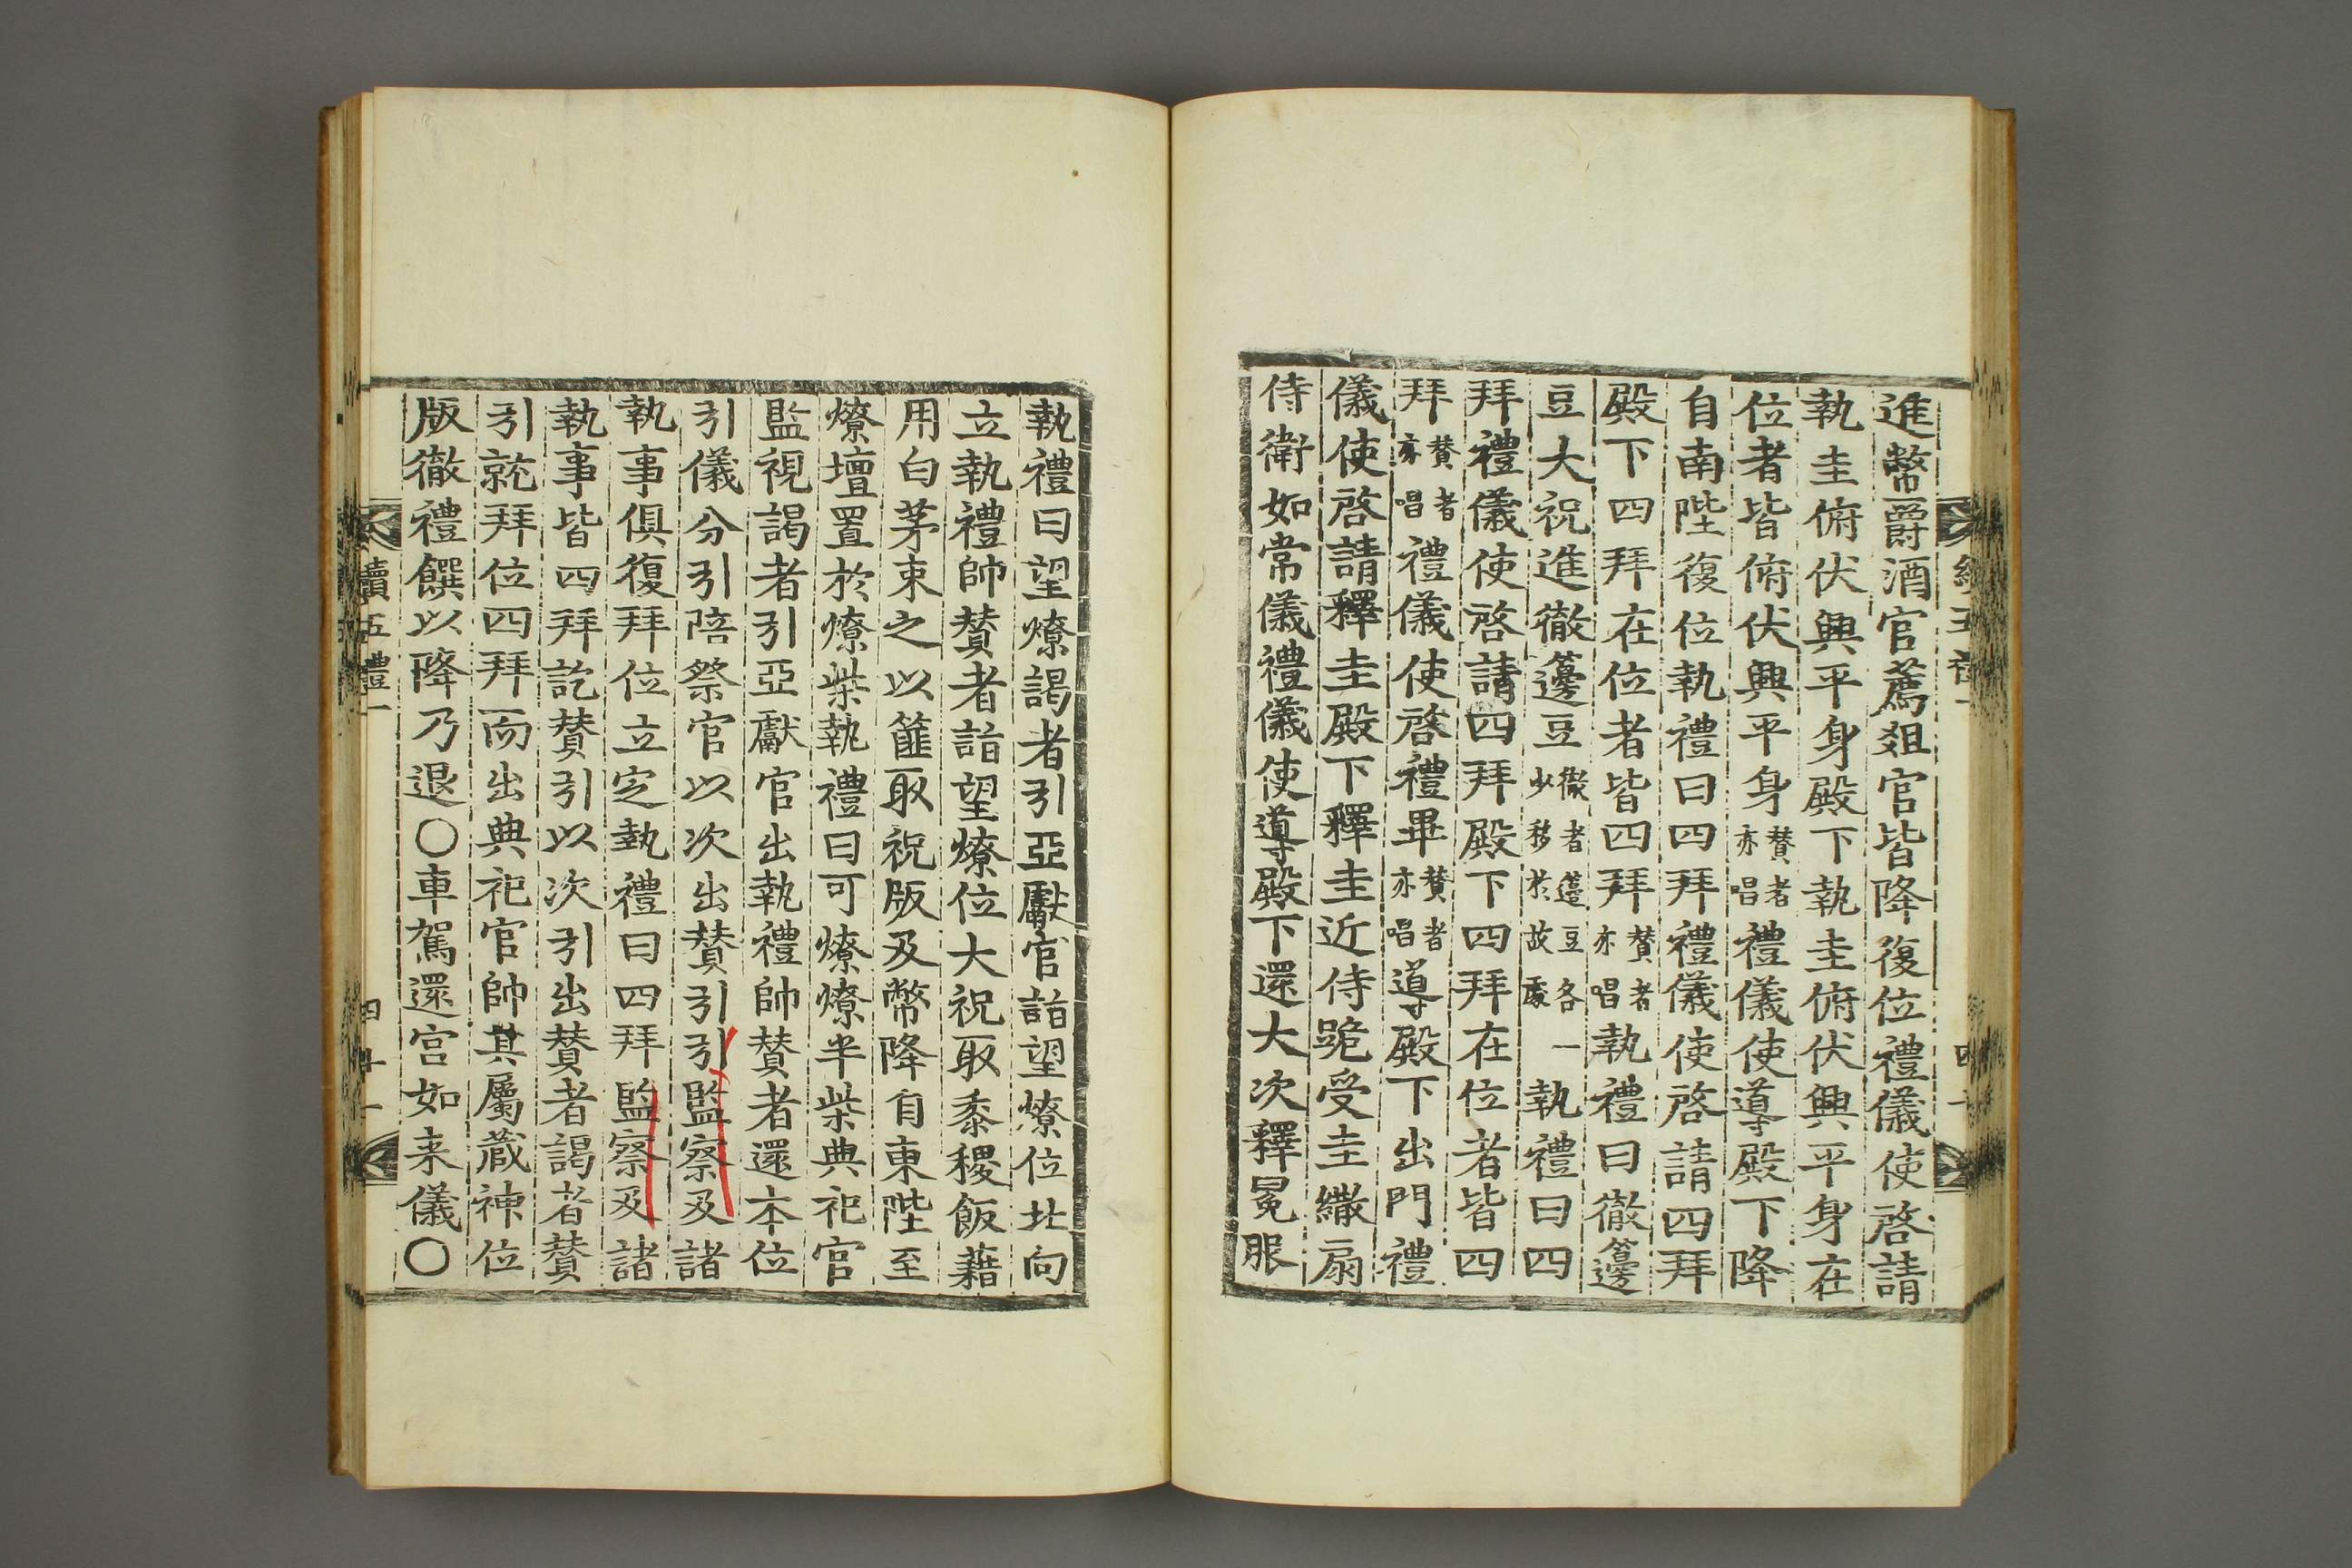 進幣爵酒官薦俎官皆降復位禮儀使啓請
執圭俯伏興平身殿下執圭俯伏興平身在
位者皆俯伏興平身贊者亦唱禮儀使導殿下降
自南陛復位執禮曰四拜禮儀使啓請四拜
殿下四拜在位者皆四拜贊者亦唱執禮曰徹籩
豆大祝進徹籩豆徹者籩豆各一少移於故處執禮曰四
拜禮儀使啓請四拜殿下四拜在位者皆四
拜贊者亦唱禮儀使啓禮畢贊者亦唱導殿下出門禮
儀使啓請釋圭殿下釋圭近侍跪受圭繖扇
侍衛如常儀禮儀使導殿下還大次釋冕服
執禮曰望燎謁者引亞獻官詣望燎位北向
立執禮帥贊者詣望燎位大祝取黍稷飯藉
用白茅束之以篚取祝版及幣降自東陛至
燎壇置於燎柴執禮曰可燎燎半柴典祀官
監視謁者引亞獻官出執禮帥贊者還本位
引儀分引陪祭官以次出贊引引監察及諸
執事俱復拜位立定執禮曰四拜監察及諸
執事皆四拜訖贊引以次引出贊者謁者贊
引就拜位四拜而出典祀官帥其屬藏神位
版徹禮饌以降乃退〇車駕還宮如来儀〇
續五禮一
四十一